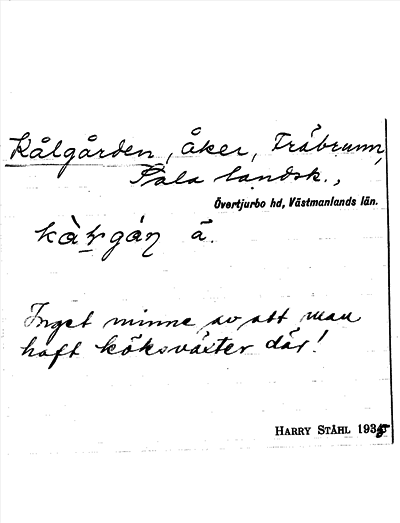 Kålgården, åker, Träbrunn,
Sala landsk.,
Övertjurbo hd, Västmanlands län.
å.
Inget minne av att man
haft köksväxter där!
HARRY STÅHL 1935